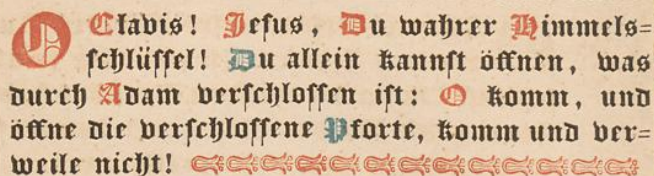 O Clavis! Jesus, Du wahrer Himmels=
schlüssel! Du allein kannst öffnen, was
durch Adam verschlossen ist: O komm, und
öffne die verschlossene Pforte, komm und ver=
weile nicht!